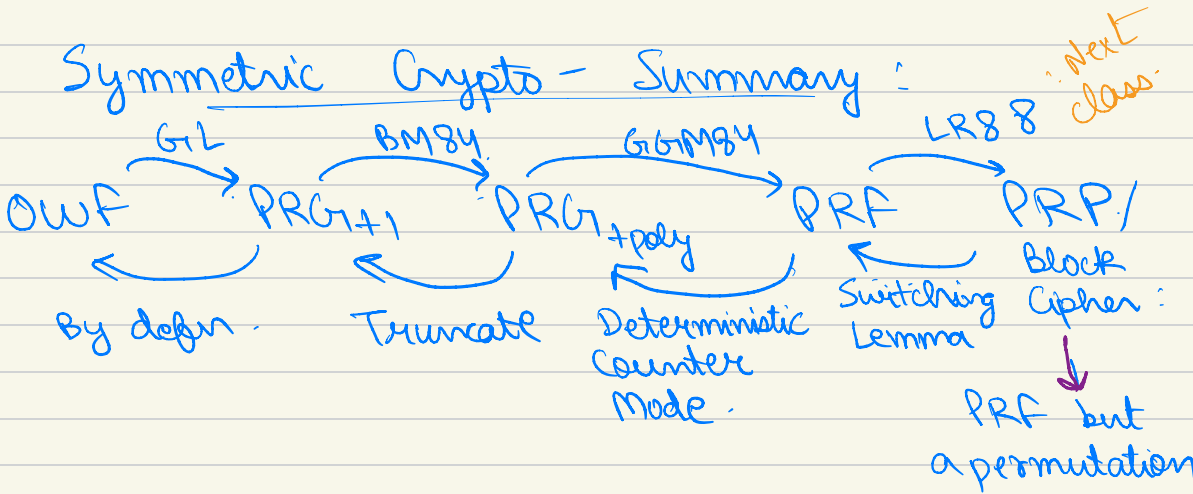 Symmetric Crypto - Summary :
: Next
class.
GL BM84 GGM84 LR88
OWF PRG+1 PRG+poly PRF PRP/
Block
Cipher :
By defn. Truncate Deterministic
Counter
Mode.
Switching
Lemma
PRF but
a permutation